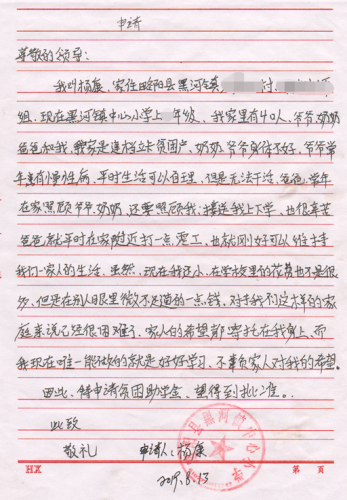 申请
尊敬的领导:
我叫杨康,家住略阳县黑河镇 村
组,现在黑河镇中心小学上 年级,我家里有4口人,爷爷.奶奶
爸爸和我,我家是建档立卡贫困户,奶奶.爷爷身体不好,爷爷常
年患有慢性病,平时生活可以自理,但是无法干活,爸爸常年
在家照顾爷爷.奶奶,还要照顾我:接送我上下学,也很辛苦
爸爸就平时在家附近打一点零工,也就刚好可以维持
我们一家人的生活.虽然,现在我还小.在学校里的花费也不是很
多,但是在别人眼里微不足道的一点钱,对于我们这样的家
庭来说已经很困难了,家人的希望都寄托在我身上,而
我现在唯一能做的就是好好学习,不辜负家人对我的希望.
因此,特申请贫困助学金,望得到批准..
此致
敬礼 申请人:杨康
2019.8.13
县黑河镇中心小学
HX 第 页